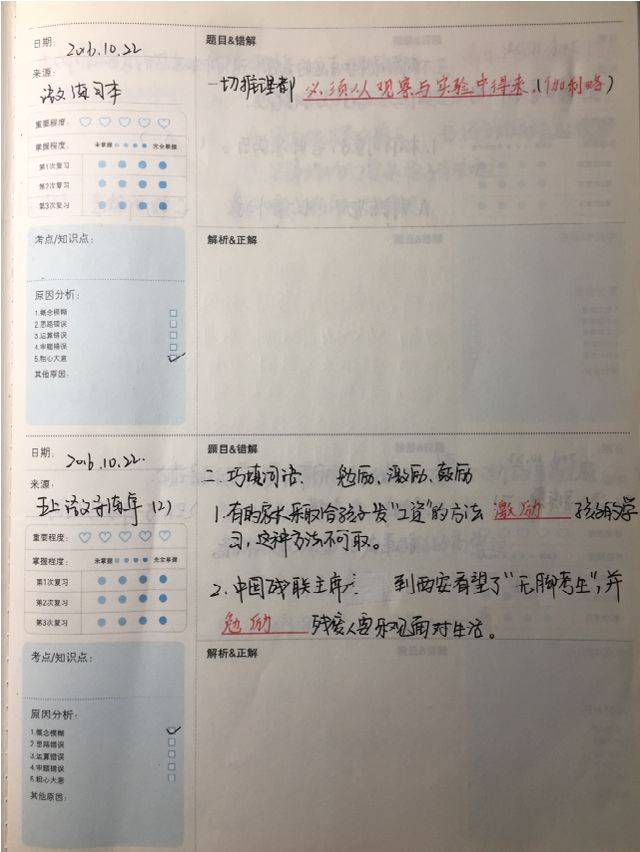 日期： 2016.10.22
题目&错解
来源：
语文练习本
一切推理都必须从观察与实验中得来。(伽利略)
重要程度：
掌握程度： 未掌握 完全掌握
第1次复习
第2次复习
第3次复习
考点/知识点：
解析&正解
原因分析：
1.概念模糊
2.思路错误
3.运算错误
4.审题错误
5.粗心大意
其他原因：
日期： 2016.10.22.
题目&错解
来源：
五上语文引南车(2)
二、巧填词语： 勉励、激励、鼓励
1.有的家长采取给孩子发“工资”的方法 激励 孩子的学
习，这种方法不可取。
2.中国残联主席 到西安看望了“无脚考生”，并
勉励 残疾人要乐观面对生活。
重要程度：
掌握程度： 未掌握 完全掌握
第1次复习
第2次复习
第3次复习
考点/知识点：
解析&正解
原因分析：
1.概念模糊
2.思路错误
3.运算错误
4.审题错误
5.粗心大意
其他原因：